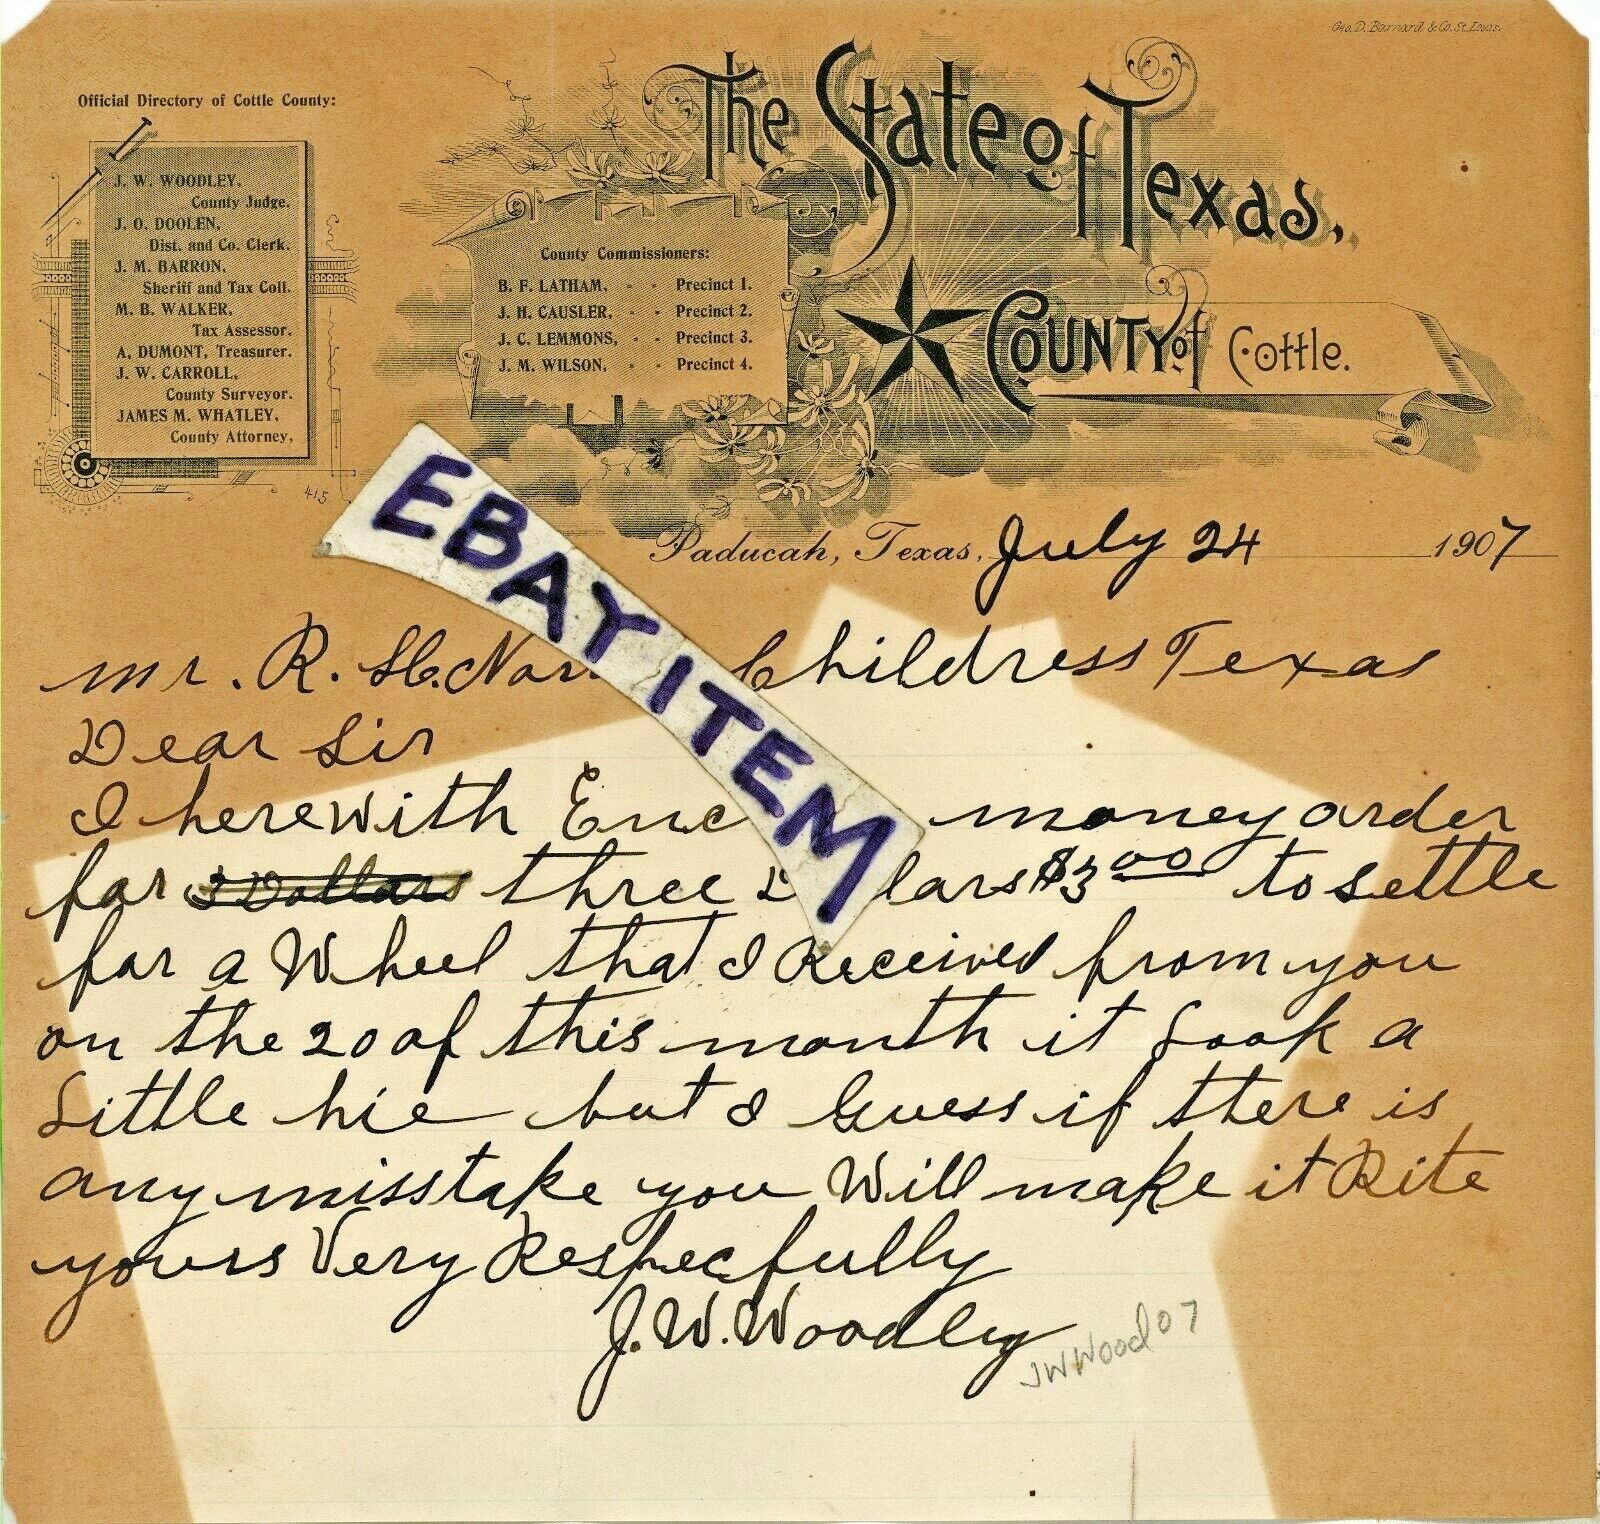 Geo. D. Barnard & Co. St. Louis.
The State of Texas,
County of Cottle.
Official Directory of Cottle County:
J. W. WOODLEY,
County Judge.
J. O. DOOLEN,
Dist. and Co. Clerk.
J. M. BARRON,
Sheriff and Tax Coll.
M. B. WALKER,
Tax Assessor.
A. DUMONT, Treasurer.
J. W. CARROLL,
County Surveyor.
JAMES M. WHATLEY,
County Attorney,
415
County Commissioners:
B. F. LATHAM, - - Precinct 1.
J. H. CAUSLER, - - Precinct 2.
J. C. LEMMONS, - - Precinct 3.
J. M. WILSON, - - Precinct 4.
EBAY ITEM
Paducah, Texas, July 24 1907
Mr. R. H. Childress Texas
Dear Sir
I herewith money order
for 3 Dollars three $3.00 to settle
for a Wheel that I Received from you
on the 20 of this month it Look a
Little hie but I Guess if there is
any misstake you Will make it Rite
yours Very Respecfully
J. W. Woodley
JW Wood 07